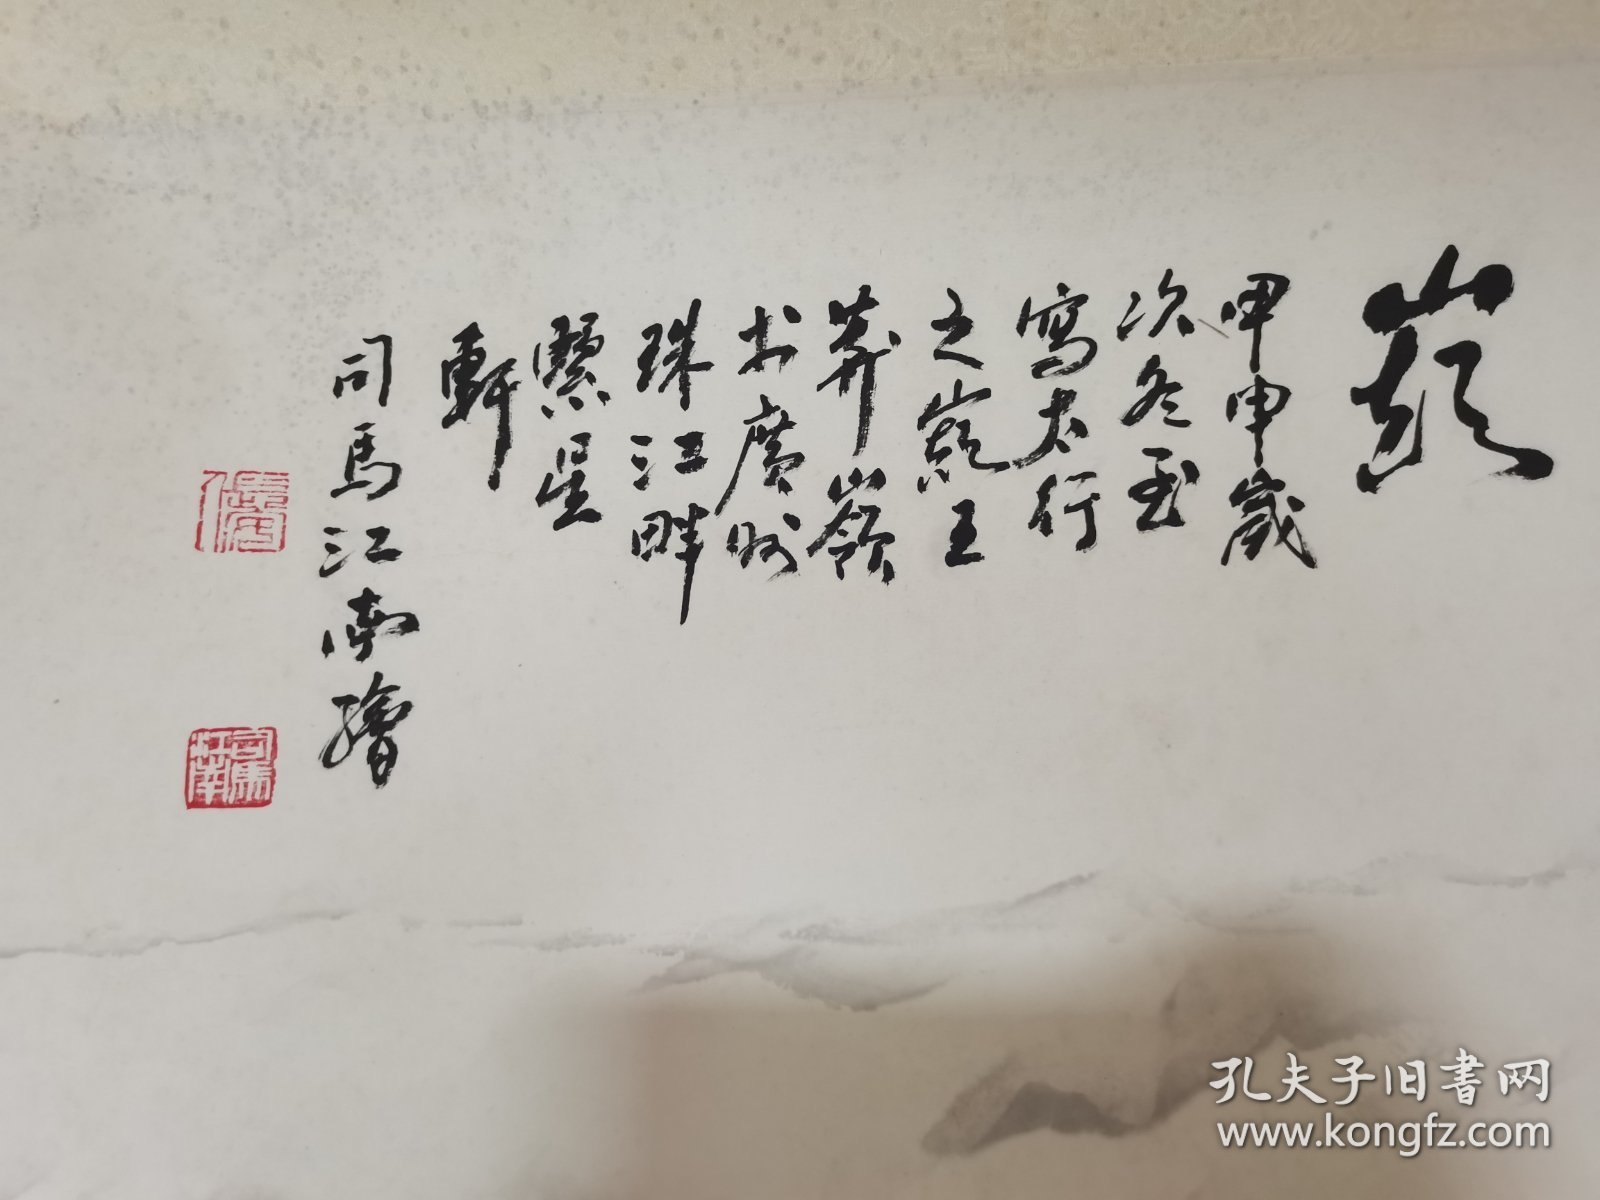 巔
甲申歲
次冬至
寫太行
之巔王
莽嶺
书廣州
珠江畔
星
軒
司馬江南繪
司馬江南
孔夫子旧书网
www.kongfz.com